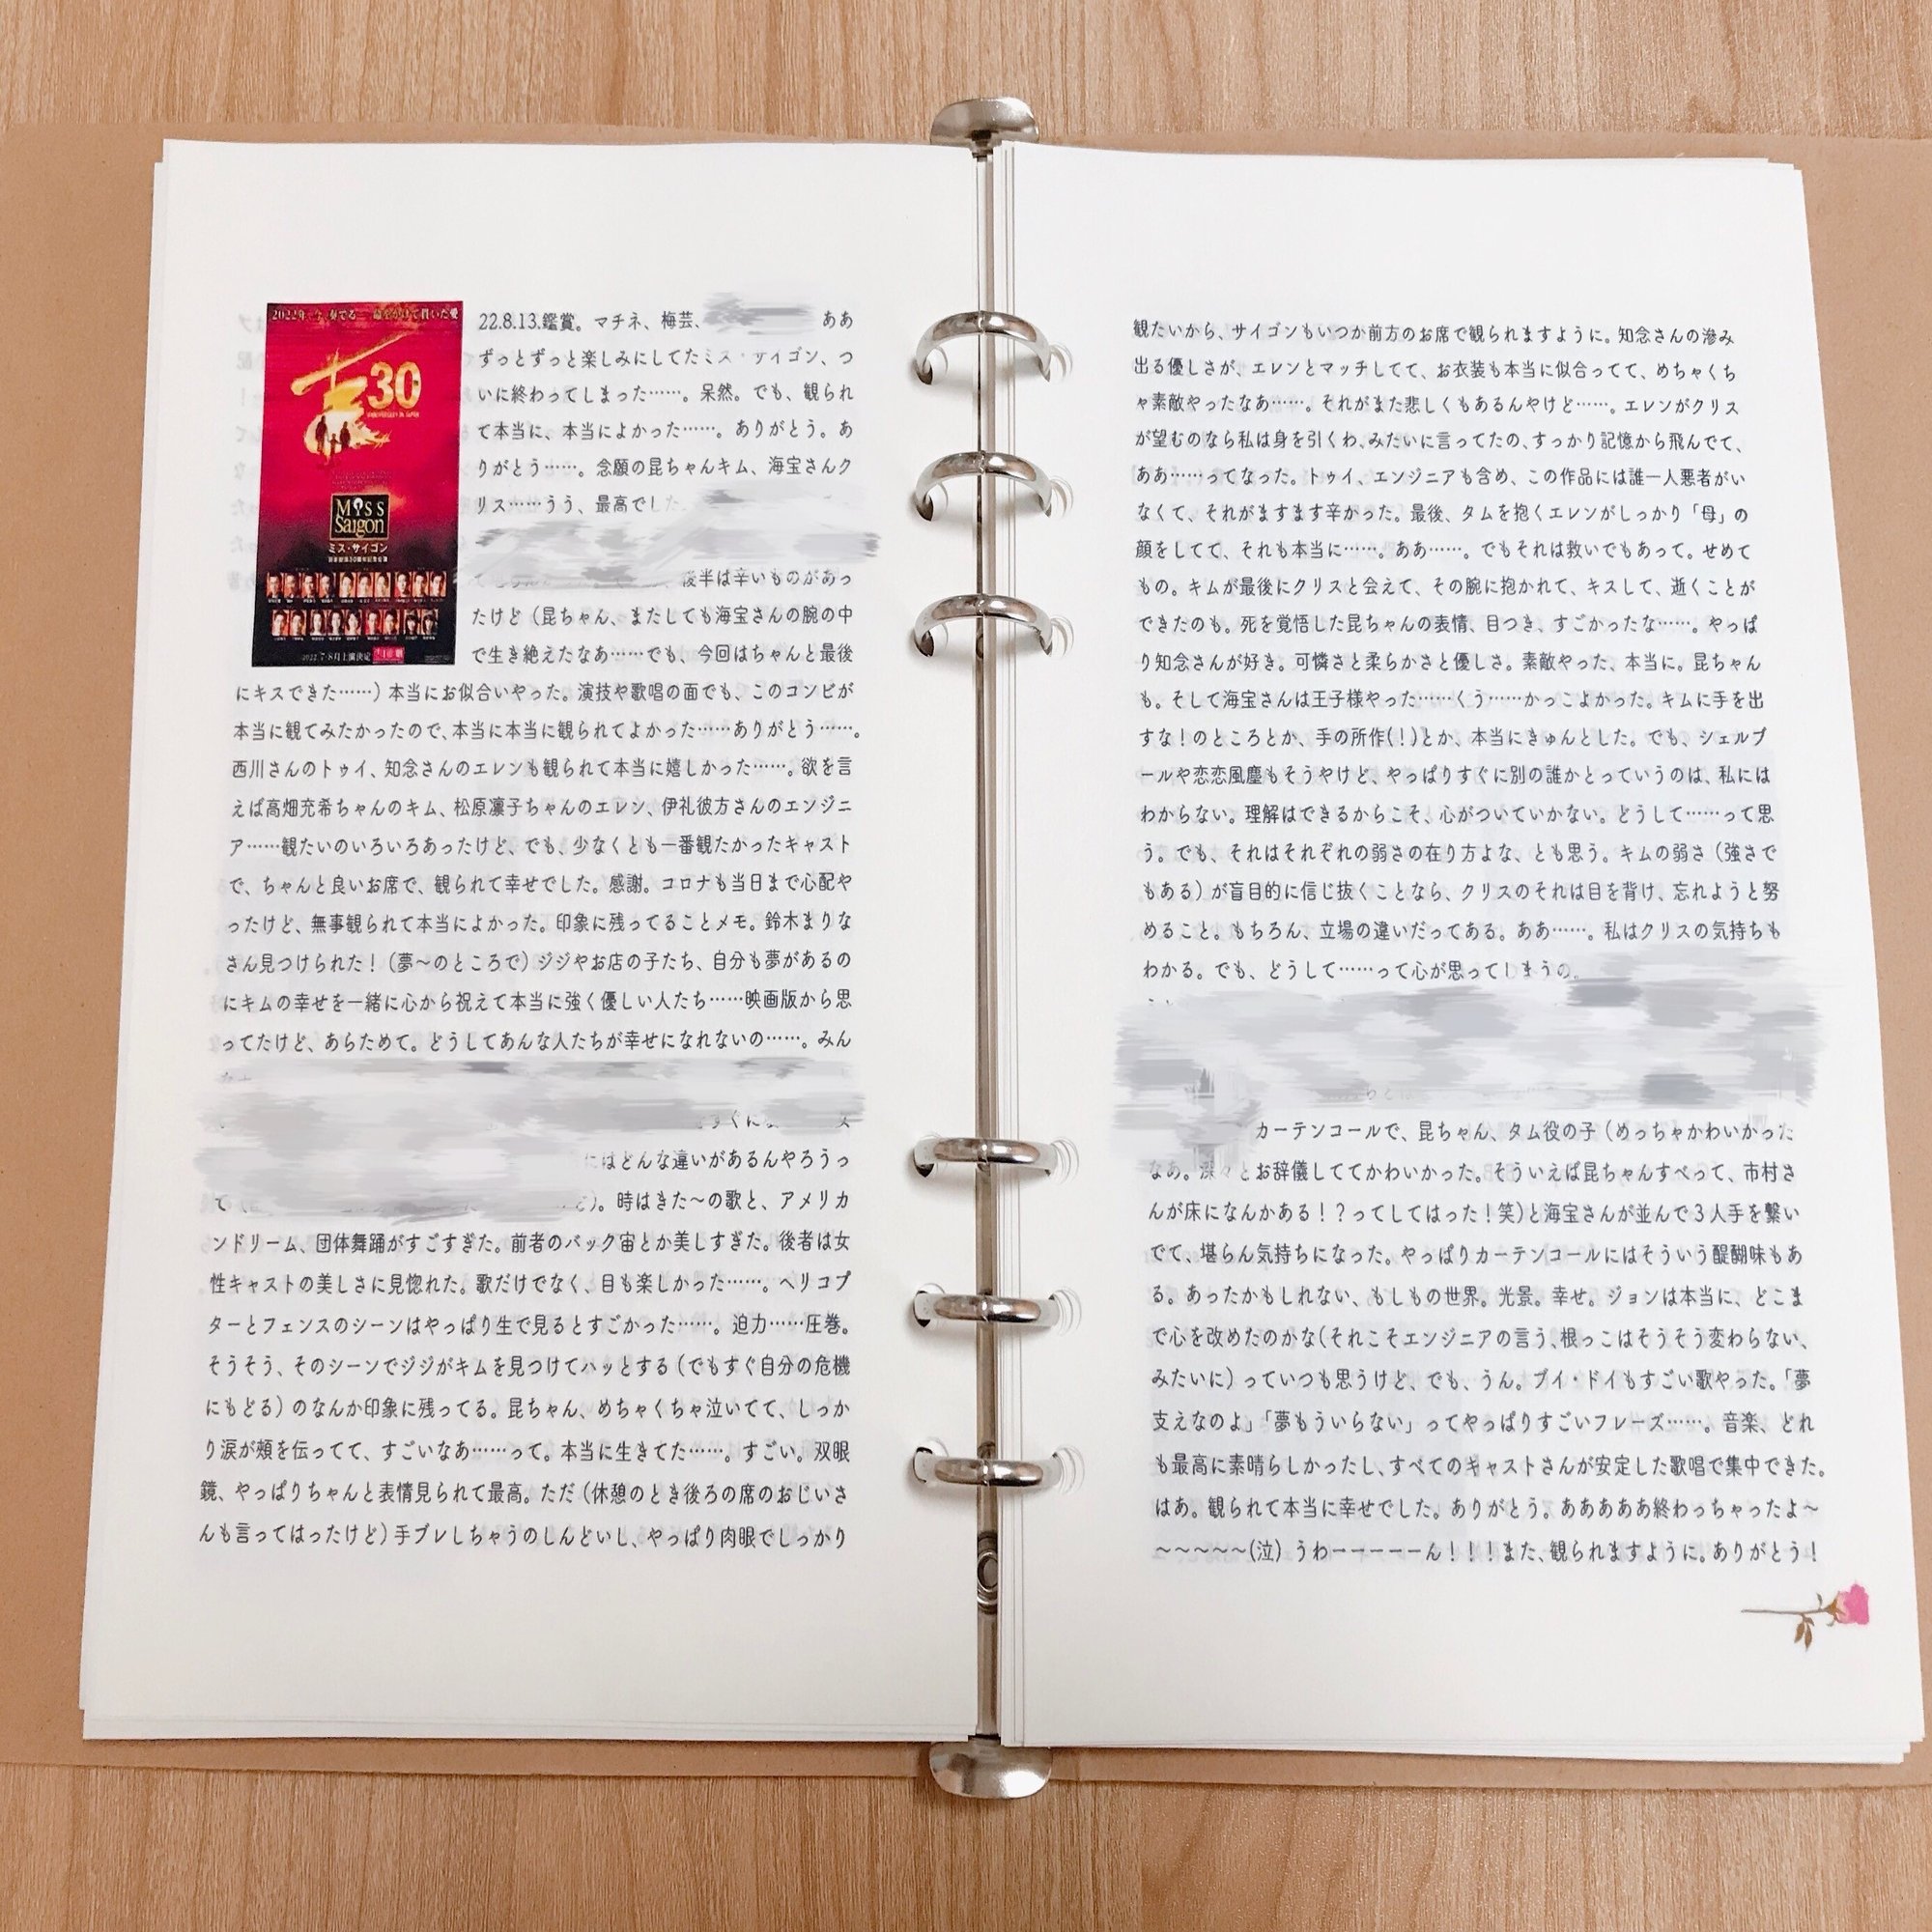 2022年
30
MISS
Saigon
ミス・サイゴン
22.8.13.鑑賞。マチネ、梅芸、 ああ
ずっとずっと楽しみにしてたミス・サイゴン、つ
いに終わってしまった……。呆然。でも、観られ
て本当に、本当によかった……。ありがとう。あ
りがとう……。念願の昆ちゃんキム、海宝さんク
リス……うう、最高でした
後半は辛いものがあっ
たけど（昆ちゃん、またしても海宝さんの腕の中
で生き絶えたなあ……でも、今回はちゃんと最後
にキスできた……）本当にお似合いやった。演技や歌唱の面でも、このコンビが
本当に観てみたかったので、本当に本当に観られてよかった……ありがとう……。
西川さんのトゥイ、知念さんのエレンも観られて本当に嬉しかった……。欲を言
えば高畑充希ちゃんのキム、松原凜子ちゃんのエレン、伊礼彼方さんのエンジニ
ア……観たいのいろいろあったけど、でも、少なくとも一番観たかったキャスト
で、ちゃんと良いお席で、観られて幸せでした。感謝。コロナも当日まで心配や
ったけど、無事観られて本当によかった。印象に残ってることメモ。鈴木まりな
さん見つけられた！（夢〜のところで）ジジやお店の子たち、自分も夢があるの
にキムの幸せを一緒に心から祝えて本当に強く優しい人たち……映画版から思
ってたけど、あらためて。どうしてあんな人たちが幸せになれないの……。みん
にはどんな違いがあるんやろうっ
て 。時はきた〜の歌と、アメリカ
ンドリーム、団体舞踊がすごすぎた。前者のバック宙とか美しすぎた。後者は女
性キャストの美しさに見惚れた。歌だけでなく、目も楽しかった……。ヘリコプ
ターとフェンスのシーンはやっぱり生で見るとすごかった……。迫力……圧巻。
そうそう、そのシーンでジジがキムを見つけてハッとする（でもすぐ自分の危機
にもどる）のなんか印象に残ってる。昆ちゃん、めちゃくちゃ泣いてて、しっか
り涙が頬を伝ってて、すごいなあ……って。本当に生きてた……。すごい。双眼
鏡、やっぱりちゃんと表情見られて最高。ただ（休憩のとき後ろの席のおじいさ
んも言ってはったけど）手ブレしちゃうのしんどいし、やっぱり肉眼でしっかり
観たいから、サイゴンもいつか前方のお席で観られますように。知念さんの滲み
出る優しさが、エレンとマッチしてて、お衣装も本当に似合ってて、めちゃくち
ゃ素敵やったなあ……。それがまた悲しくもあるんやけど……。エレンがクリス
が望むのなら私は身を引くわ、みたいに言ってたの、すっかり記憶から飛んでて、
ああ……ってなった。トゥイ、エンジニアも含め、この作品には誰一人悪者がい
なくて、それがますます辛かった。最後、タムを抱くエレンがしっかり「母」の
顔をしてて、それも本当に……。ああ……。でもそれは救いでもあって。せめて
もの。キムが最後にクリスと会えて、その腕に抱かれて、キスして、逝くことが
できたのも。死を覚悟した昆ちゃんの表情、目つき、すごかったな……。やっぱ
り知念さんが好き。可憐さと柔らかさと優しさ。素敵やった、本当に。昆ちゃん
も。そして海宝さんは王子様やった……くう……かっこよかった。キムに手を出
すな！のところとか、手の所作(！)とか、本当にきゅんとした。でも、シェルブ
ールや恋恋風塵もそうやけど、やっぱりすぐに別の誰かとっていうのは、私には
わからない。理解はできるからこそ、心がついていかない。どうして……って思
う。でも、それはそれぞれの弱さの在り方よな、とも思う。キムの弱さ（強さで
もある）が盲目的に信じ抜くことなら、クリスのそれは目を背け、忘れようと努
めること。もちろん、立場の違いだってある。ああ……。私はクリスの気持ちも
わかる。でも、どうして……って心が思ってしまうの。
カーテンコールで、昆ちゃん、タム役の子（めっちゃかわいかった
なあ。深々とお辞儀しててかわいかった。そういえば昆ちゃんすべって、市村さ
んが床になんかある！？ってしてはった！笑)と海宝さんが並んで３人手を繋い
でて、堪らん気持ちになった。やっぱりカーテンコールにはそういう醍醐味もあ
る。あったかもしれない、もしもの世界。光景。幸せ。ジョンは本当に、どこま
で心を改めたのかな(それこそエンジニアの言う、根っこはそうそう変わらない、
みたいに）っていつも思うけど、でも、うん。ブイ・ドイもすごい歌やった。「夢
支えなのよ」「夢もういらない」ってやっぱりすごいフレーズ……。音楽、どれ
も最高に素晴らしかったし、すべてのキャストさんが安定した歌唱で集中できた。
はあ。観られて本当に幸せでした。ありがとう。あああああ終わっちゃったよ〜
〜〜〜〜〜(泣) うわーーーーーん！！！また、観られますように。ありがとう！